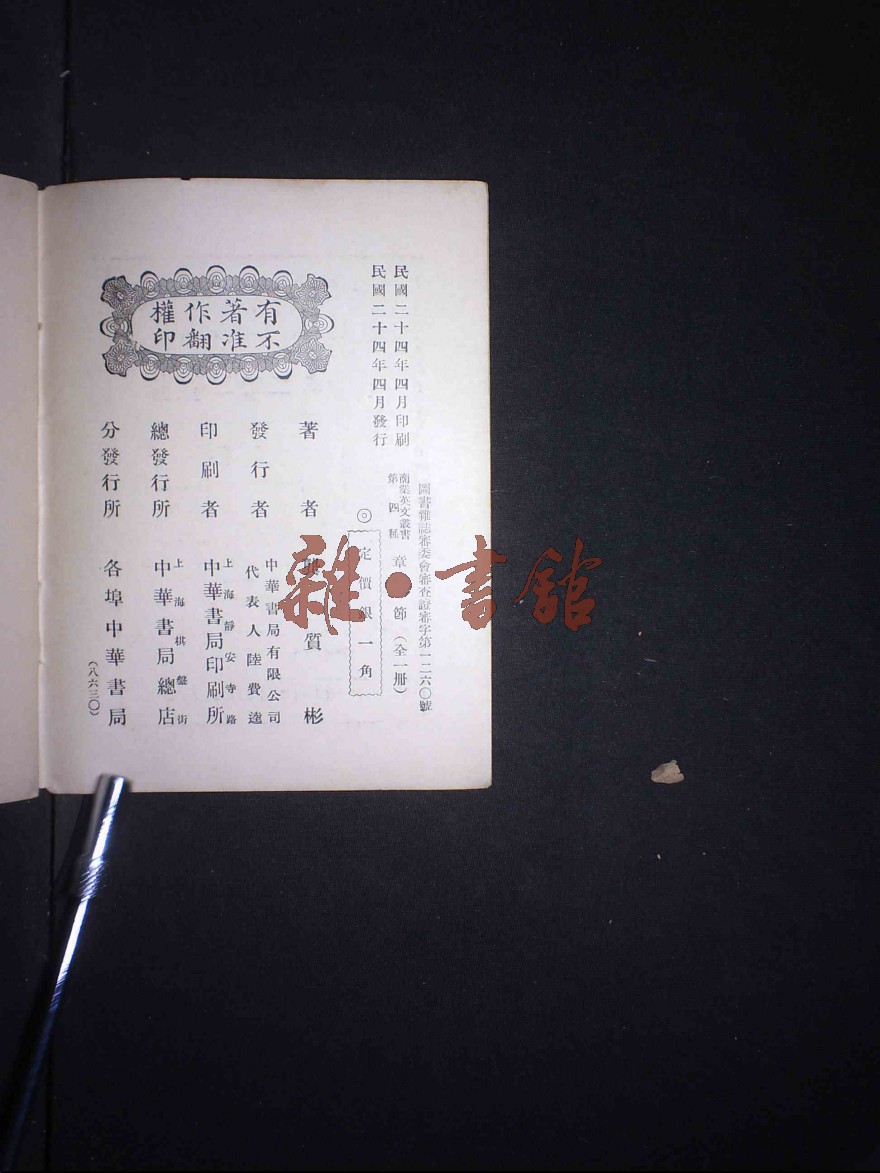 民國二十四年四月印刷
民國二十四年四月發行
圖書雜誌審委會審查證審字第一二六〇號
商業英文叢書
第四種
章節（全一册）
◎
定價銀一角
有著作權
不准翻印
著者
質彬
發行者
中華書局有限公司
代表人陸費逵
印刷者
上海靜安寺路
中華書局印刷所
總發行所
上海棋盤街
中華書局總店
分發行所
各埠中華書局
（八六三〇）
雜·書館